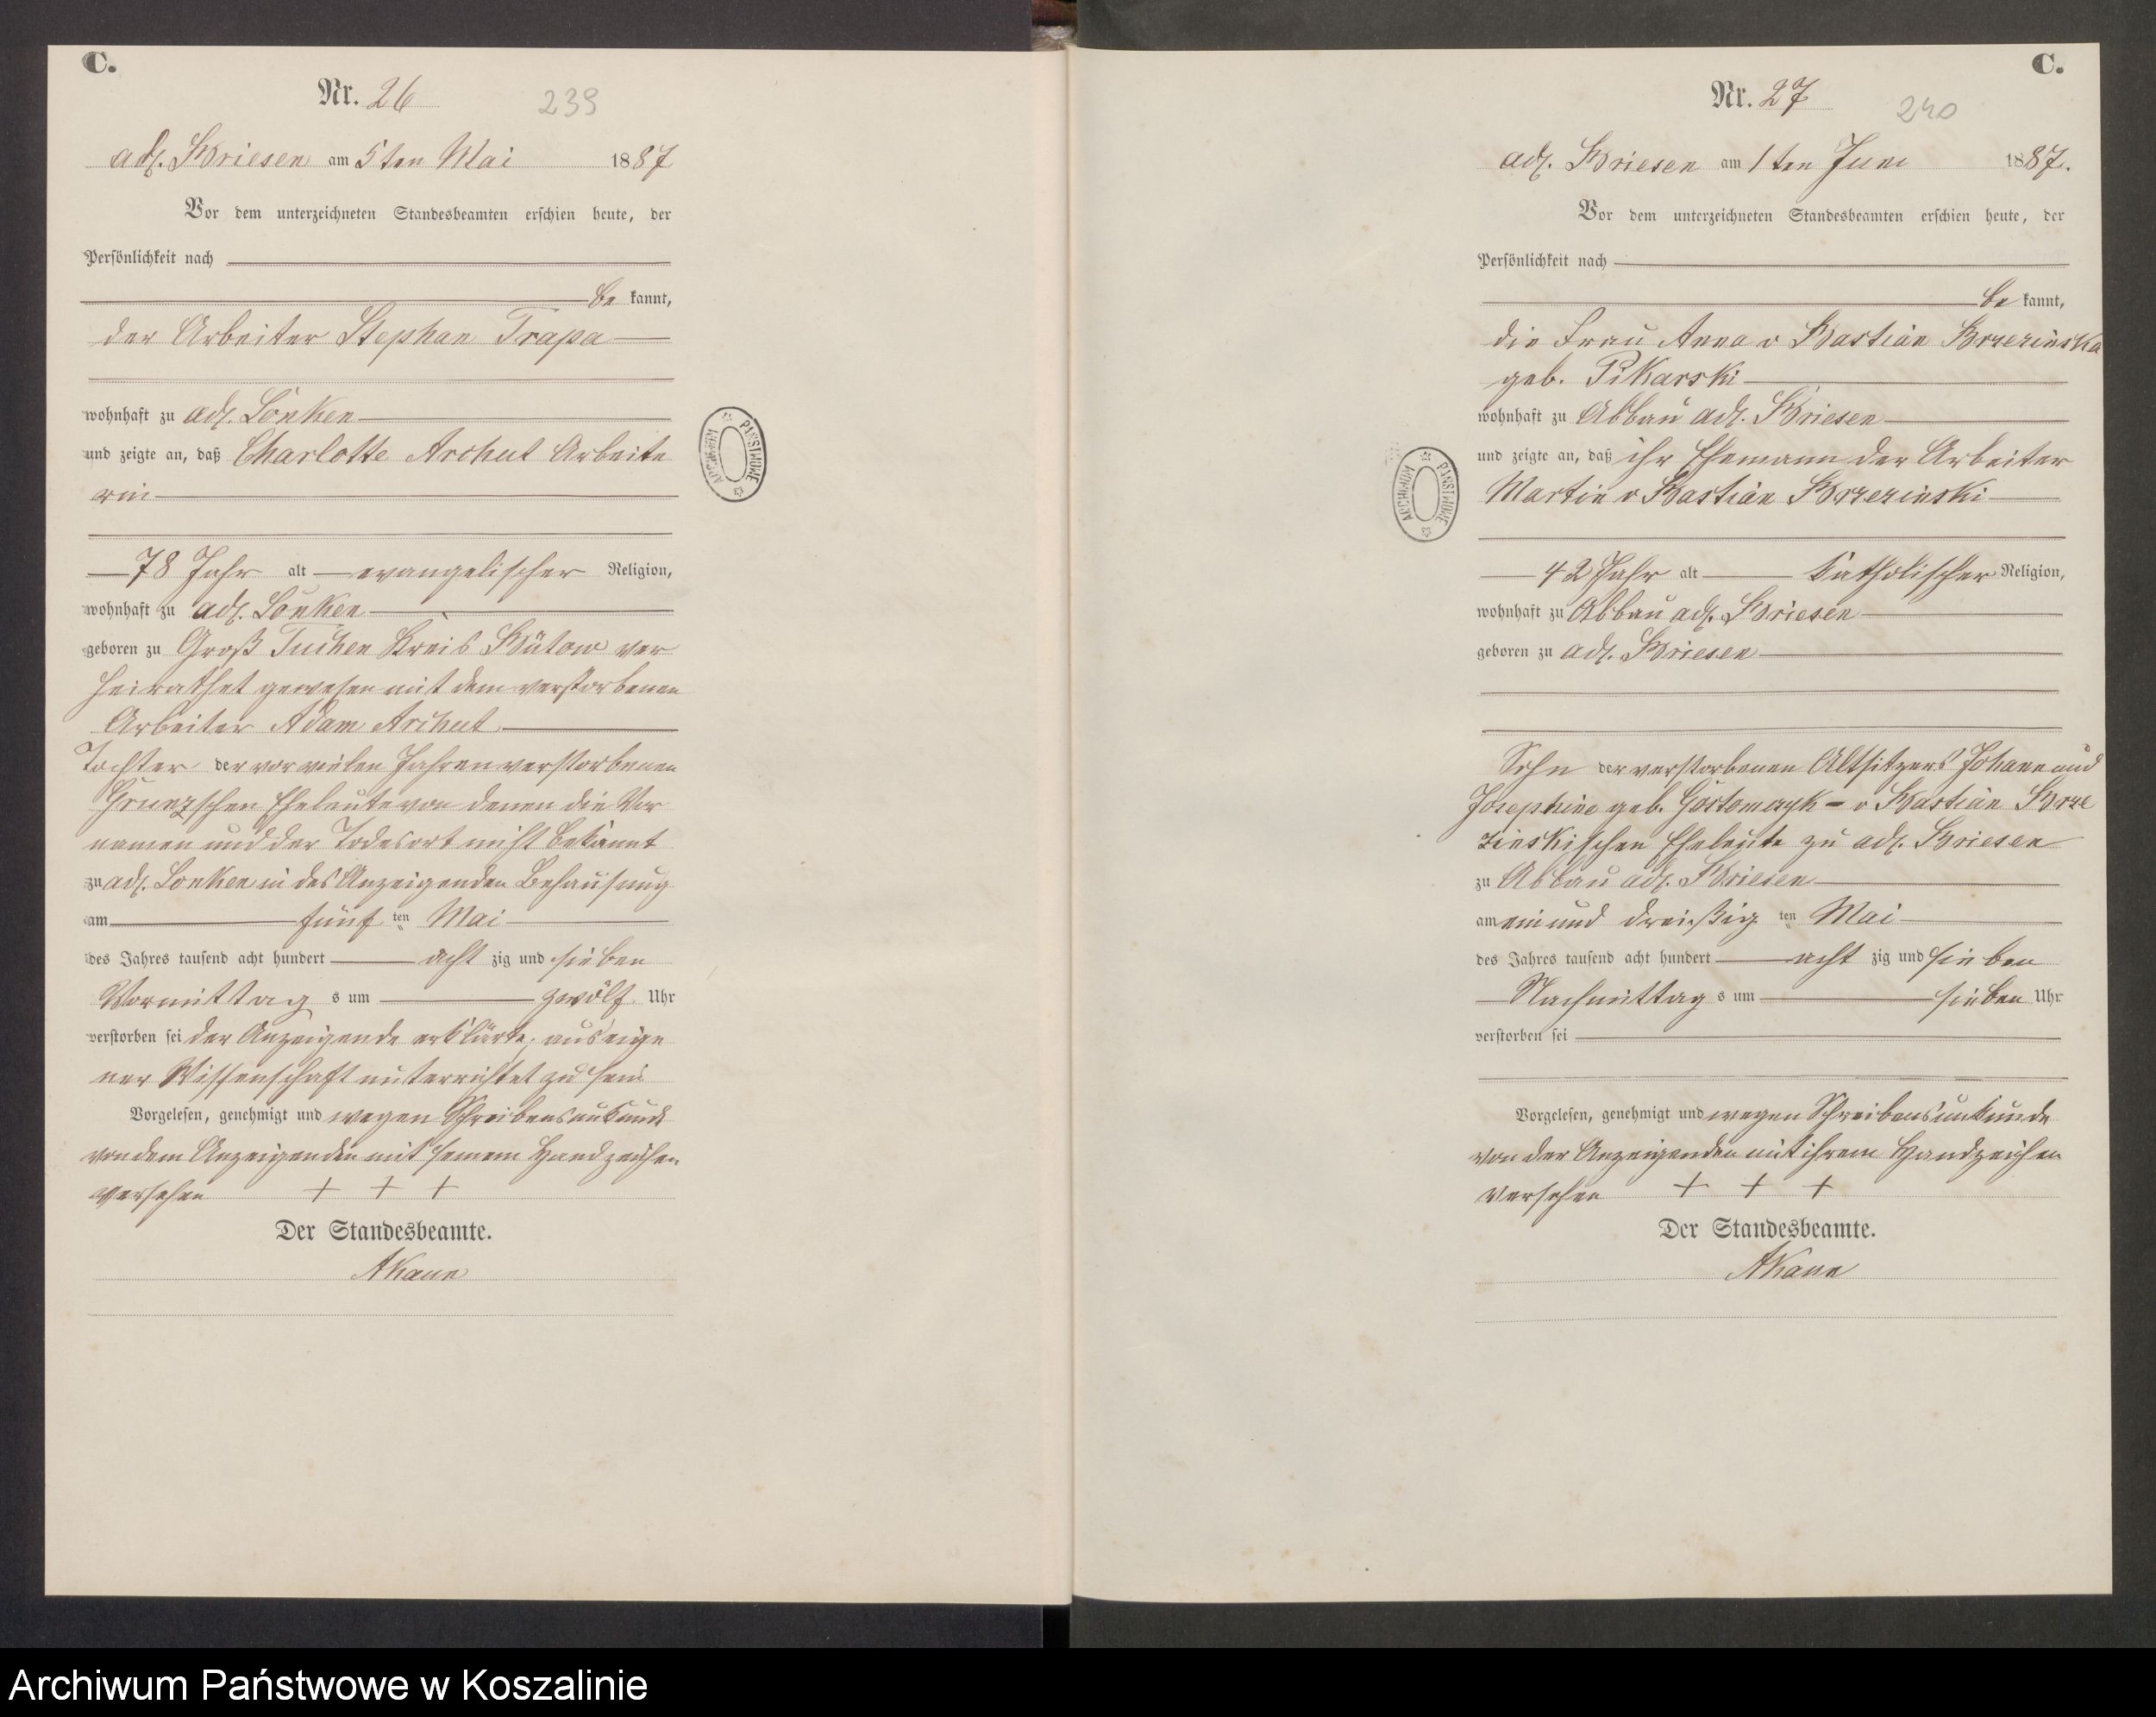 C.
Nr. 26
239
adl. Briesen am 5ten Mai 1887
Vor dem unterzeichneten Standesbeamten erschien heute, der
Persönlichkeit nach
be kannt,
der Arbeiter Stephan Trapa
wohnhaft zu adl. Lonken
und zeigte an, daß Charlotte Archut Arbeite
rin
78 Jahr alt evangelischer Religion,
wohnhaft zu adl. Lonken
geboren zu Groß Tuchen Kreis Bütow ver
heirathet gewesen mit dem verstorbenen
Arbeiter Adam Archut
Tochter der vor vielen Jahren verstorbenen
Eheleute von denen die Vor
namen und der Todesort nicht bekannt
zu adl. Lonken in des Anzeigenden Behausung
am fünf ten Mai
des Jahres tausend acht hundert acht zig und sieben
Vormittag s um zwölf Uhr
verstorben sei der Anzeigende erklärte, aus eige
ner Wissenschaft unterrichtet zu sein
Vorgelesen, genehmigt und wegen Schreibensunkunde
von dem Anzeigenden mit seinem Handzeichen
versehen + + +
Der Standesbeamte.
AKaun
ARCHIWUM PAŃSTWOWE
C.
Nr. 27
240
adl. Briesen am 1ten Juni 1887.
Vor dem unterzeichneten Standesbeamten erschien heute, der
Persönlichkeit nach
be kannt,
die Frau Anna v Bastian Brzezinska
geb. Pikarski
wohnhaft zu Abbau adl. Briesen
und zeigte an, daß ihr Ehemann der Arbeiter
Martin v Bastian Brzezinski
42 Jahr alt katholischer Religion,
wohnhaft zu Abbau adl. Briesen
geboren zu adl. Briesen
Sohn der verstorbenen Altsitzers Johann und
Josephine geb. Gostomczyk - v Bastian Brze
zinskischen Eheleute zu adl. Briesen
zu Abbau adl. Briesen
am ein und dreißig ten Mai
des Jahres tausend acht hundert acht zig und sieben
Nachmittag s um sieben Uhr
verstorben sei
Vorgelesen, genehmigt und wegen Schreibensunkunde
von der Anzeigenden mit ihrem Handzeichen
versehen + + +
Der Standesbeamte.
AKaun
ARCHIWUM PAŃSTWOWE
Archiwum Państwowe w Koszalinie